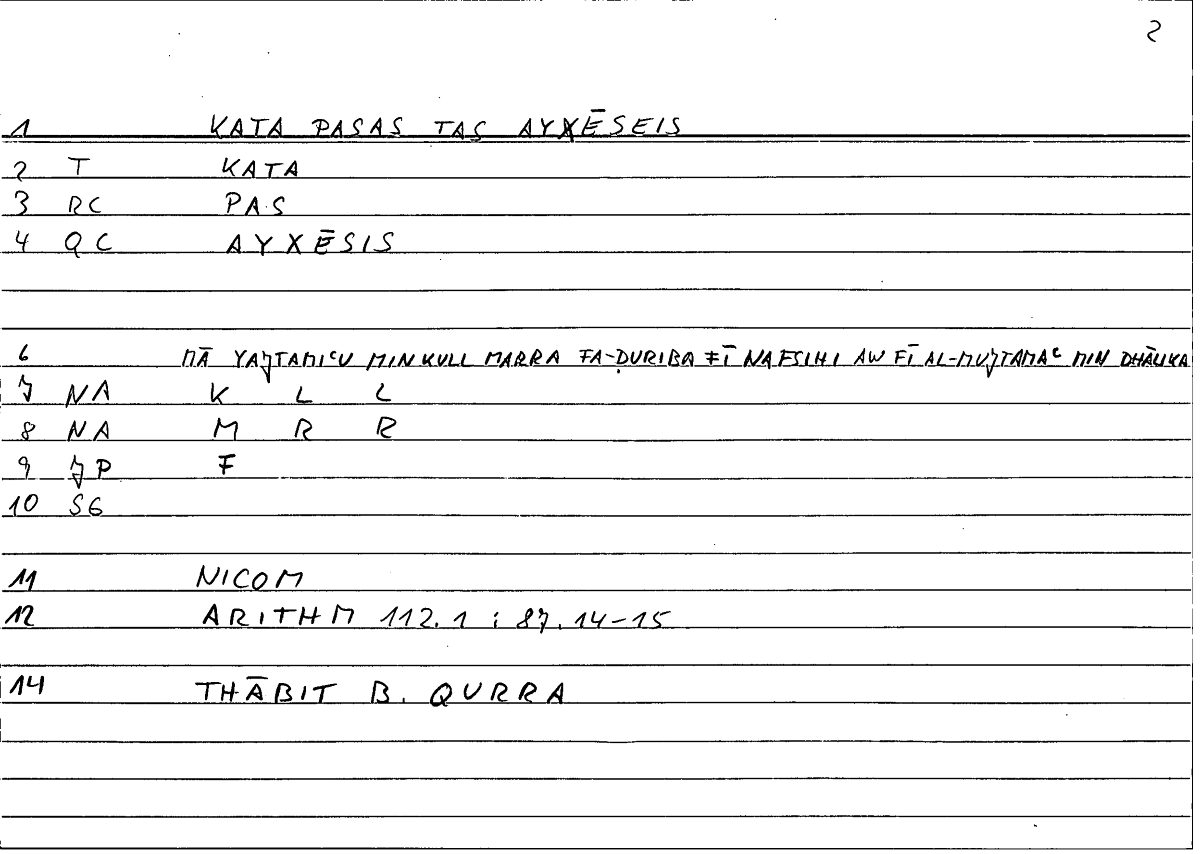 2
1 KATA PASAS TAS AYXĒSEIS
2 T KATA
3 RC PAS
4 QC AYXĒSIS
6 MĀ YAJTAMIʿU MIN KULL MARRA FA-ḌURIBA FĪ NAFSIHI AW FĪ AL-MUJTAMAʿ MIN DHĀLIKA
7 NA K L L
8 NA M R R
9 JP F
10 SG
11 NICOM
12 ARITHM 112.1 ; 87.14-15
14 THĀBIT B. QURRA